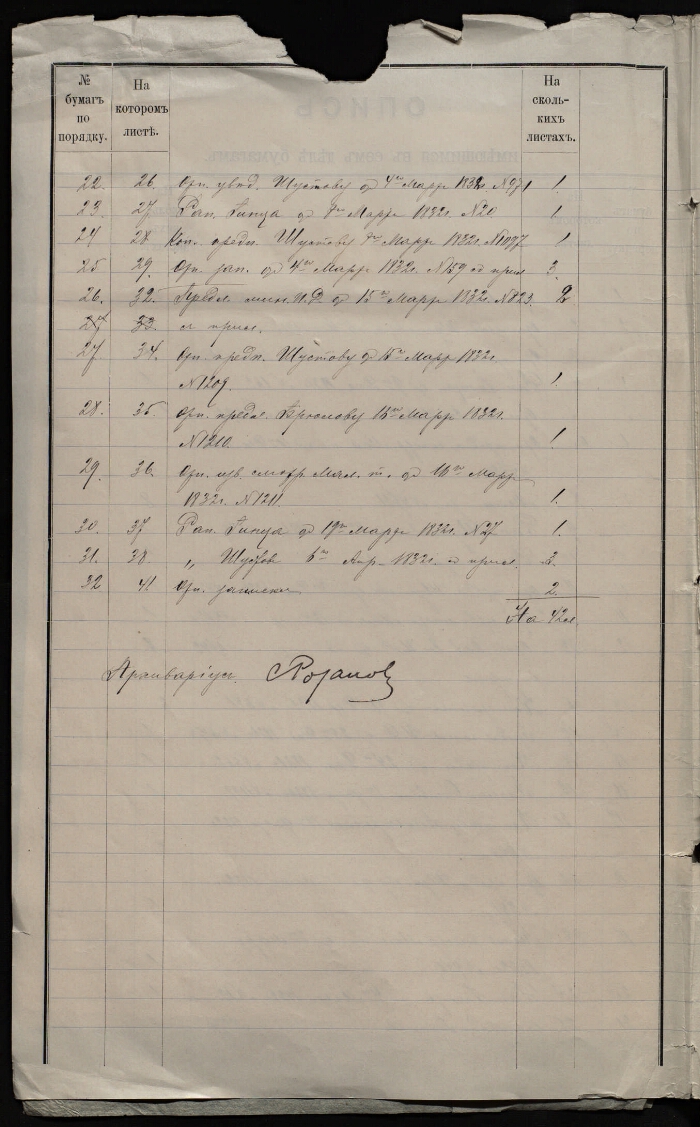 № бумагъ по порядку. На которомъ листѣ. На сколь- кихъ листахъ.
22. 26. Ор. увед. Шустову д 4го Марта 1832г. № 971 1.
23. 27. Рап. Гинца д 8го Марта 1832г. № 20 1.
24 28 Коп. предп. Шустову 8го Марта 1832г. № 1097 1
25 29. Ор. зап. д 4го Марта 1832г. № 159 съ прил 3.
26. 32. Предл. мин. И.Д. д 15го Марта 1832г. № 823. 2
27 33. съ прил.
27 34. Ор. предп. Шустову д 15го Марта 1832г.
№ 1209. 1.
28. 35. Ор. предл. Брюлову 15го Марта 1832г.
№ 1210. 1.
29. 36. Ор. изв. д 16го Марта
1832г. № 1211. 1.
30. 37 Рап. Гинца д 19го Марта 1832г. № 27 1.
31. 38 „ Шустов 6го Апр. 1832г. съ прил. 3.
32 41 Ор. записка 2.
На 42л.
Архиваріус. Розанов